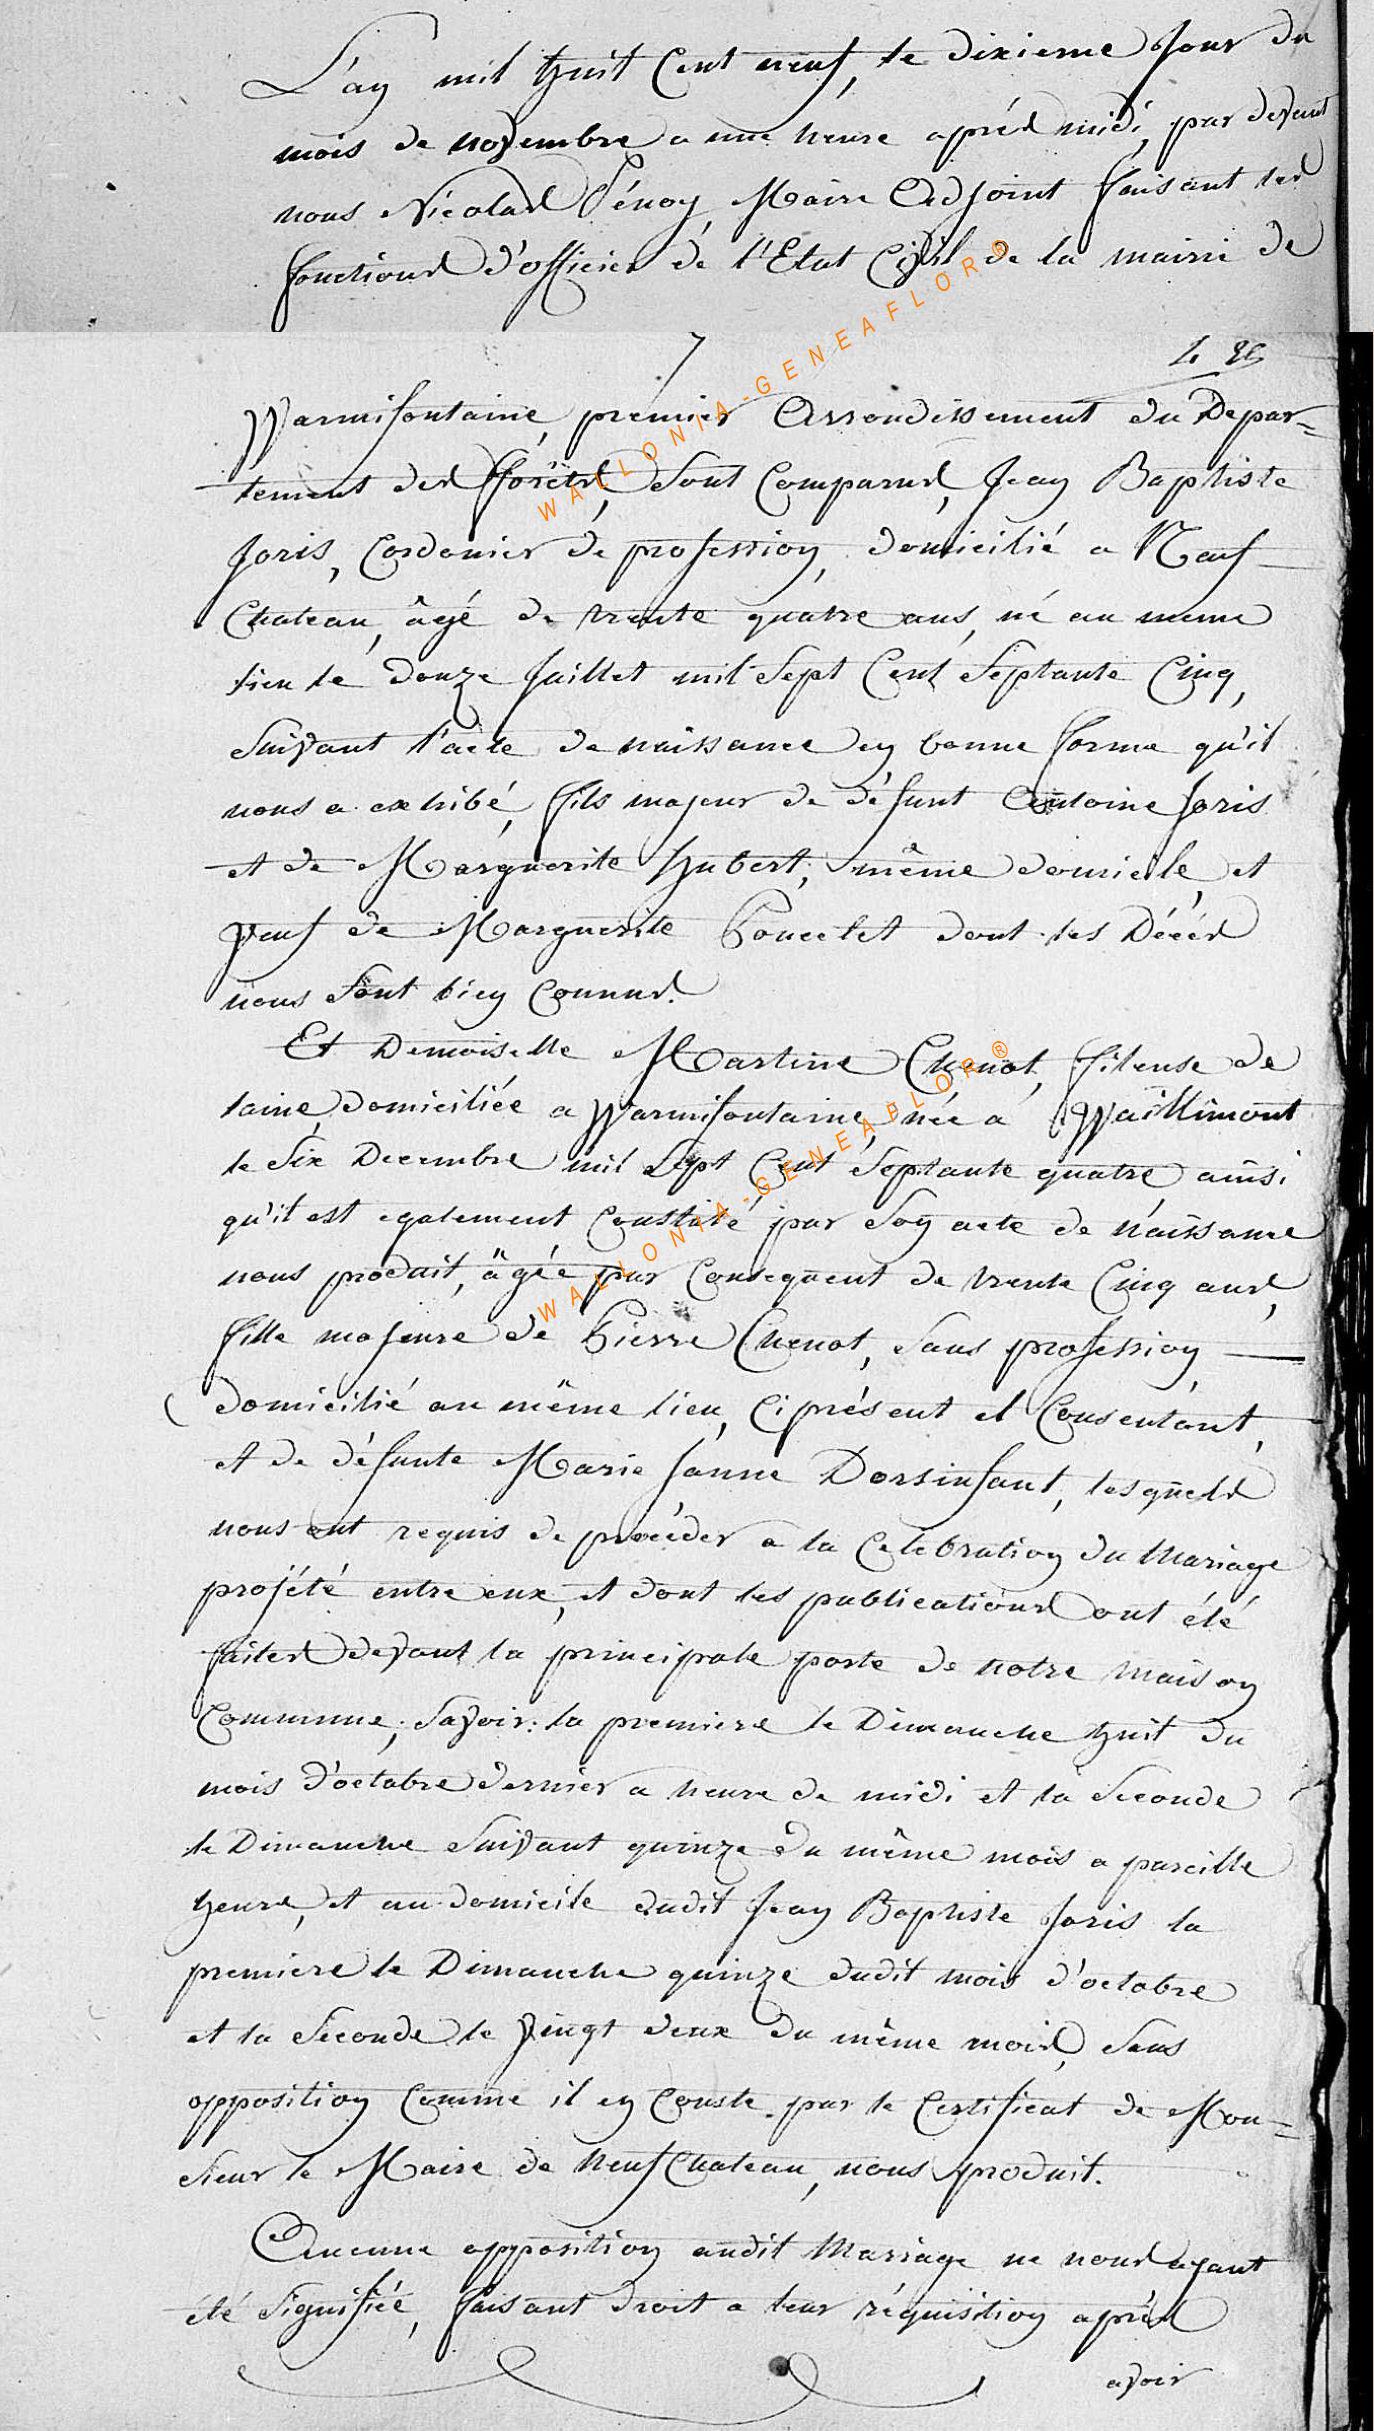 L'an mil huit Cent neuf, le dixieme Jour du
mois de novembre a une heure après midi, par devant
nous Nicolas Pénoy, Maire Adjoint faisant les
fonctions d'officier de l'Etat Civil de la mairie de
7
Warmifontaine, premier Arrondissement du Depar=
tement des fforêts, Sont Comparus, Jean Baptiste
Joris, Cordonier de profession, domicilié a Neuf
Chateau, âgé de trente quatre ans, né au meme
lieu le douze Juillet mil Sept Cent Septante Cinq,
Suivant l'acte de naissance en bonne forme qu'il
nous a exhibé, fils majeur de défunt Antoine Joris
et de Marguerite hubert, même domicile, et
veuf de Marguerite Poncelet dont les Décés
nous Sont bien Connus.
Et Demoiselle Martine Chenot, fileuse de
laine, domiciliée a Warmifontaine, née a Waillimont
le Six Decembre mil Sept Cent Septante quatre ainsi
qu'il est egalement Constaté par Son acte de naissance
nous produit, âgée par Consequent de trente Cinq ans,
fille majeure de Pierre Chenot, Sans profession,
domicilié au même lieu, Ci présent et Consentant,
et de défunte Marie Janne Dorsinfant, lesquels
nous ont requis de procéder a la Celebration du Mariage
projété entre eux, et dont les publications ont été
faites devant la principale porte de notre maison
Commune; Savoir: la premiere le Dimanche huit du
mois d'octobre dernier a heure de midi et la Seconde
le Dimanche Suivant quinze du même mois a pareille
heure, et au domicile dudit Jean Baptiste Joris la
premiere le Dimanche quinze dudit mois d'octobre
et la Seconde le vingt deux du même mois, Sans
opposition Comme il en Conste par le Certificat de Mon=
sieur le Maire de NeufChateau, nous produit.
Aucune opposition audit Mariage ne nous ayant
été Signifiée, faisant droit a leur réquisition après
avoir
WALLONIA-GENEAFLOR®
WALLONIA-GENEAFLOR®